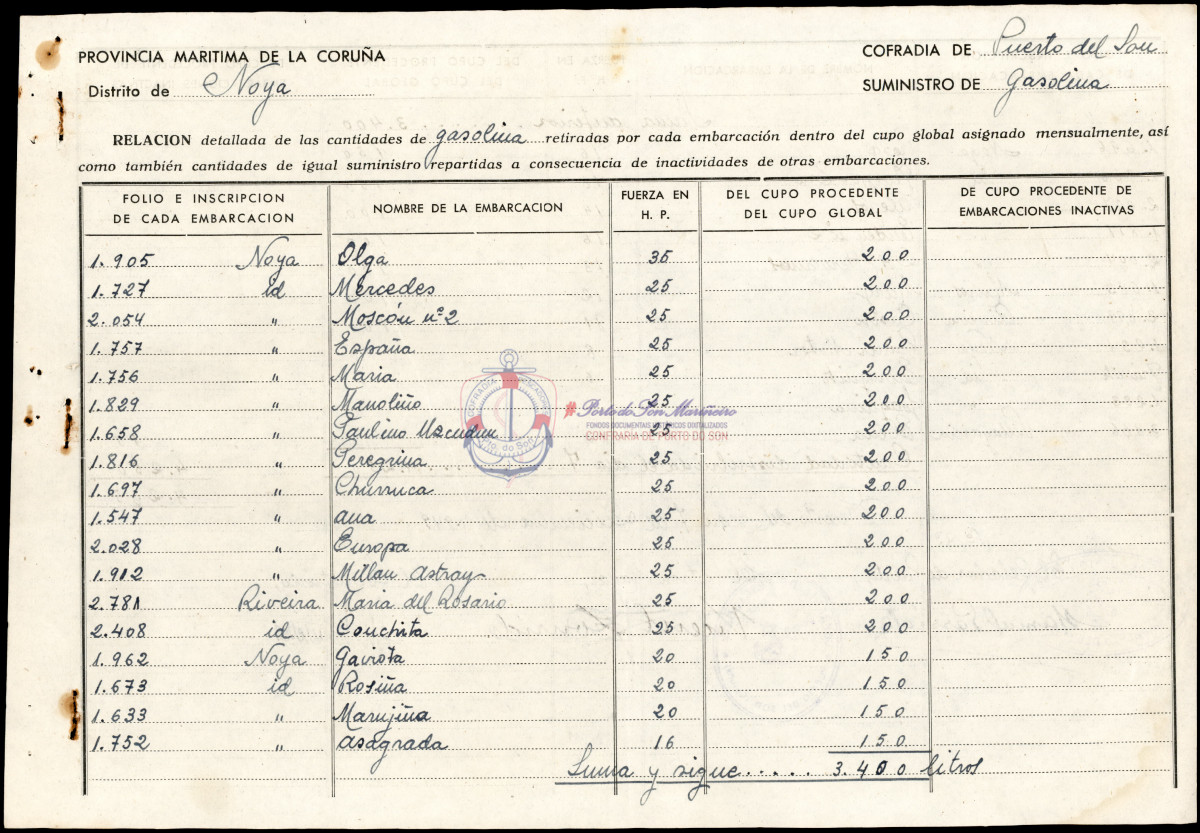 PROVINCIA MARITIMA DE LA CORUÑA
Distrito de Noya
COFRADIA DE Puerto del Son
SUMINISTRO DE Gasolina
RELACION detallada de las cantidades de gasolina retiradas por cada embarcación dentro del cupo global asignado mensualmente, así
como también cantidades de igual suministro repartidas a consecuencia de inactividades de otras embarcaciones.
FOLIO E INSCRIPCION DE CADA EMBARCACION NOMBRE DE LA EMBARCACION FUERZA EN H. P. DEL CUPO PROCEDENTE DEL CUPO GLOBAL DE CUPO PROCEDENTE DE EMBARCACIONES INACTIVAS
1.905 Noya Olga 35 200
1.727 id Mercedes 25 200
2.054 " Moscón nº 2 25 200
1.757 " España 25 200
1.756 " Maria 25 200
1.829 " Manoliño 25 200
1.658 " Paulino Uzcudun 25 200
1.816 " Peregrina 25 200
1.697 " Churruca 25 200
1.547 " Ana 25 200
2.028 " Europa 25 200
1.912 " Millan Astray 25 200
2.781 Riveira Maria del Rosario 25 200
2.408 id Conchita 25 200
1.962 Noya Gaviota 20 150
1.673 id Rosiña 20 150
1.633 " Marujiña 20 150
1.752 " Asagrada 16 150
Suma y sigue..... 3.400 litros
#Porto do Son Mariñeiro
FONDOS DOCUMENTAIS HISTÓRICOS DIXITALIZADOS
CONFRARÍA DE PORTO DO SON
Pto. do Son